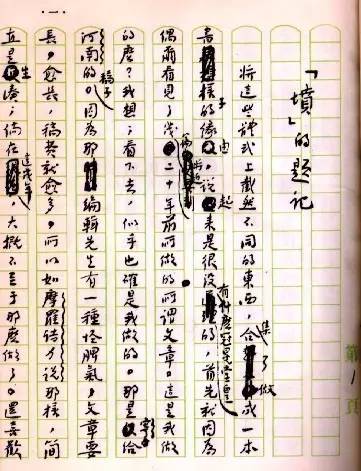 「墳」的題記
將這些體式上截然不同的東西，集合了做成一本
書樣子的緣由，說起來是很沒有什麼冠冕堂皇的，首先就因為
偶爾看見了幾篇將近二十年前所做的所謂文章。這是我做
的麼？我想；看下去，似乎也確是我做的。那是寄給
河南的稿子。因為那編輯先生有一種怪脾氣，文章要
長，愈長，稿費就愈多。所以如摩羅詩力說那樣，簡
直是生湊；倘在這幾年，大概不至于那麼做了。還喜歡
第 頁